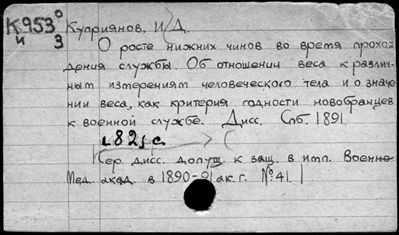 К953
и 3
Куприянов, И. Д.
О росте нижних чинов во время прохож
дения службы. Об отношении веса к различ
ным измерениям человеческого тела и о значе
нии веса, как критерия годности новобранцев
к военной службе. Дисс. Спб. 1891.
82 с.
Сер. дисс. допущ. к защ. в имп. Военно-
Мед. акад. в 1890-91 ак. г. № 41.